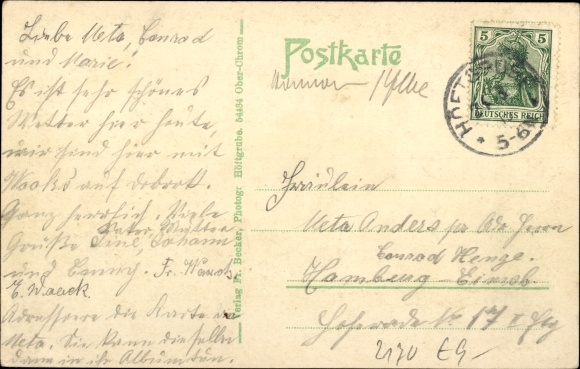 Liebe Meta, Conrad
und Marie!
Es ist sehr schönes
Wetter hier heute,
wir sind hier mit
Waaks auf
Ganz herrlich. Viele
Vater, Mutter
Grüße Tine, Johann
und Conny. Fr. Waack.
E. Waack
Adressiere die Karte an
Meta. Sie kann dieselbe
dann in ihr Album tun.
Verlag Fr. Becker, Photogr. Höltgrube. 54434 Ober-Chrom
Postkarte
5 5
DEUTSCHES REICH
5-6
Fräulein
Meta Anders pr Adr Herrn
Conrad Henge.
Hamburg-Eimsb.
No 17 II Etg
2170 EG-